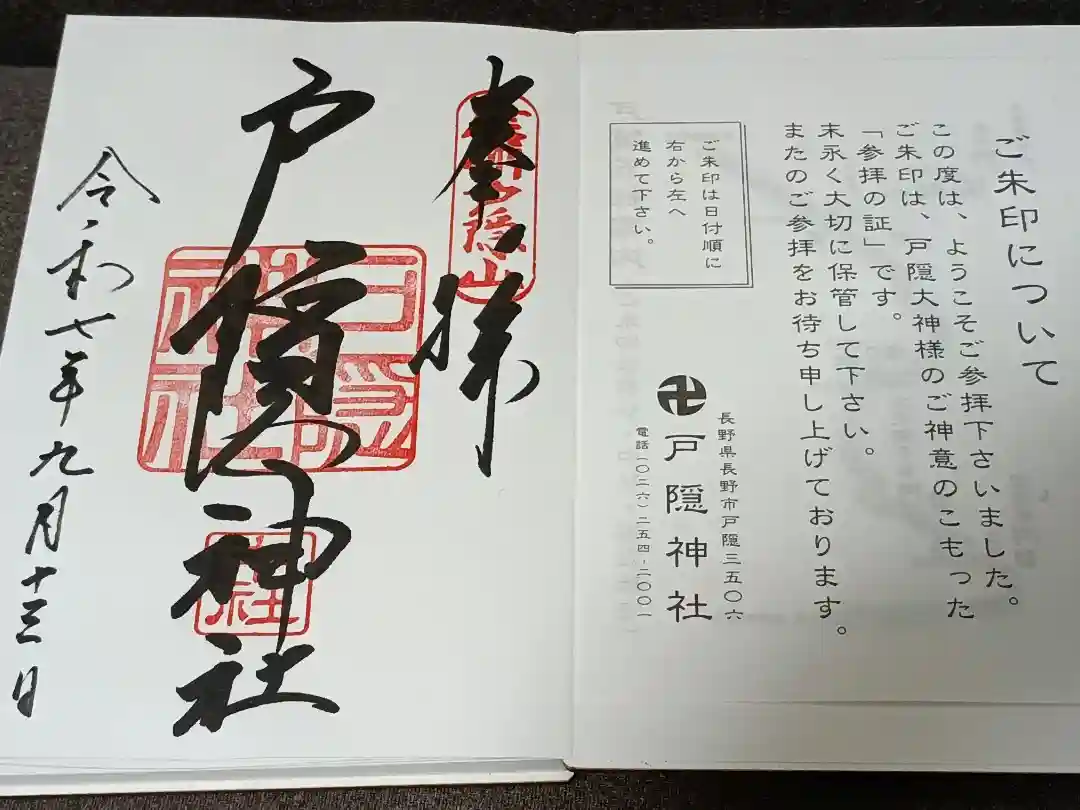 ご朱印について
この度は、ようこそご参拝下さいました。
ご朱印は、戸隠大神様のご神意のこもった
「参拝の証」です。
末永く大切に保管して下さい。
またのご参拝をお待ち申し上げております。
ご朱印は日付順に
右から左へ
進めて下さい。
長野県長野市戸隠三五〇六
戸隠神社
電話(〇二六)二五四-二〇〇一
奉拝
戸隠神社
令和七年九月十三日